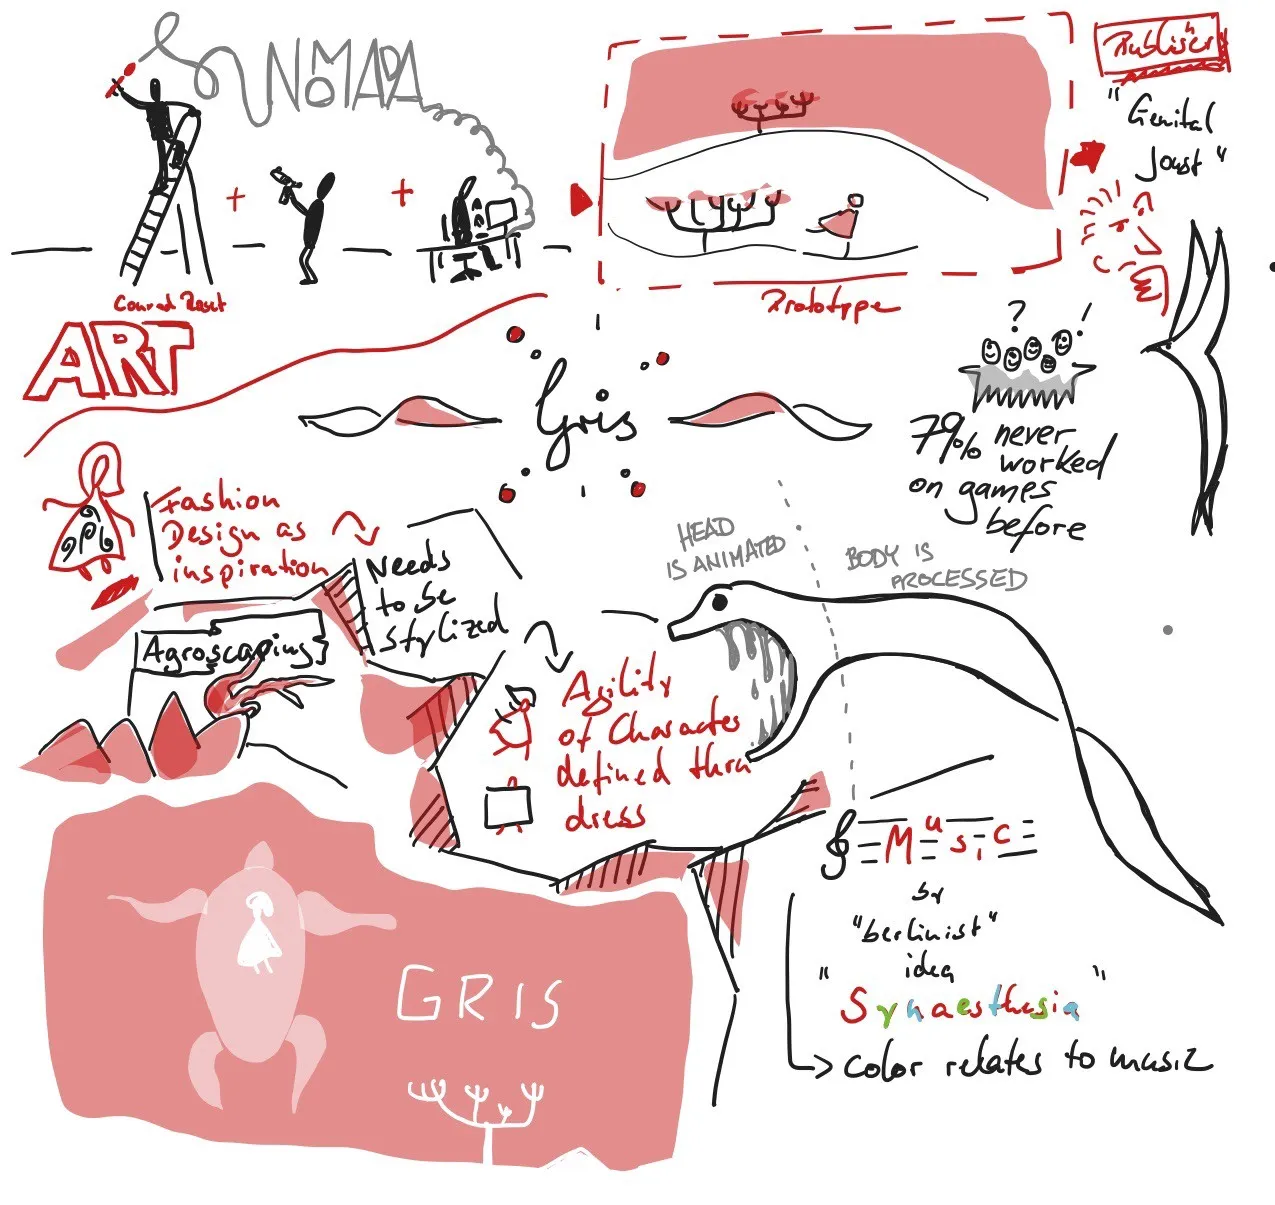 NOMADA
Publisher
"Genital
Joust"
Conrad Roset
Prototype
ART
Gris
? !
79% never
worked
on games
before
Fashion
Design as
inspiration
Needs
to be
stylized
HEAD
IS ANIMATED
BODY IS
PROCESSED
Agroscaping
Agility
of Character
defined thru
dress
Music
by
"berlinist"
idea
"Synaesthesia"
color relates to music
GRIS